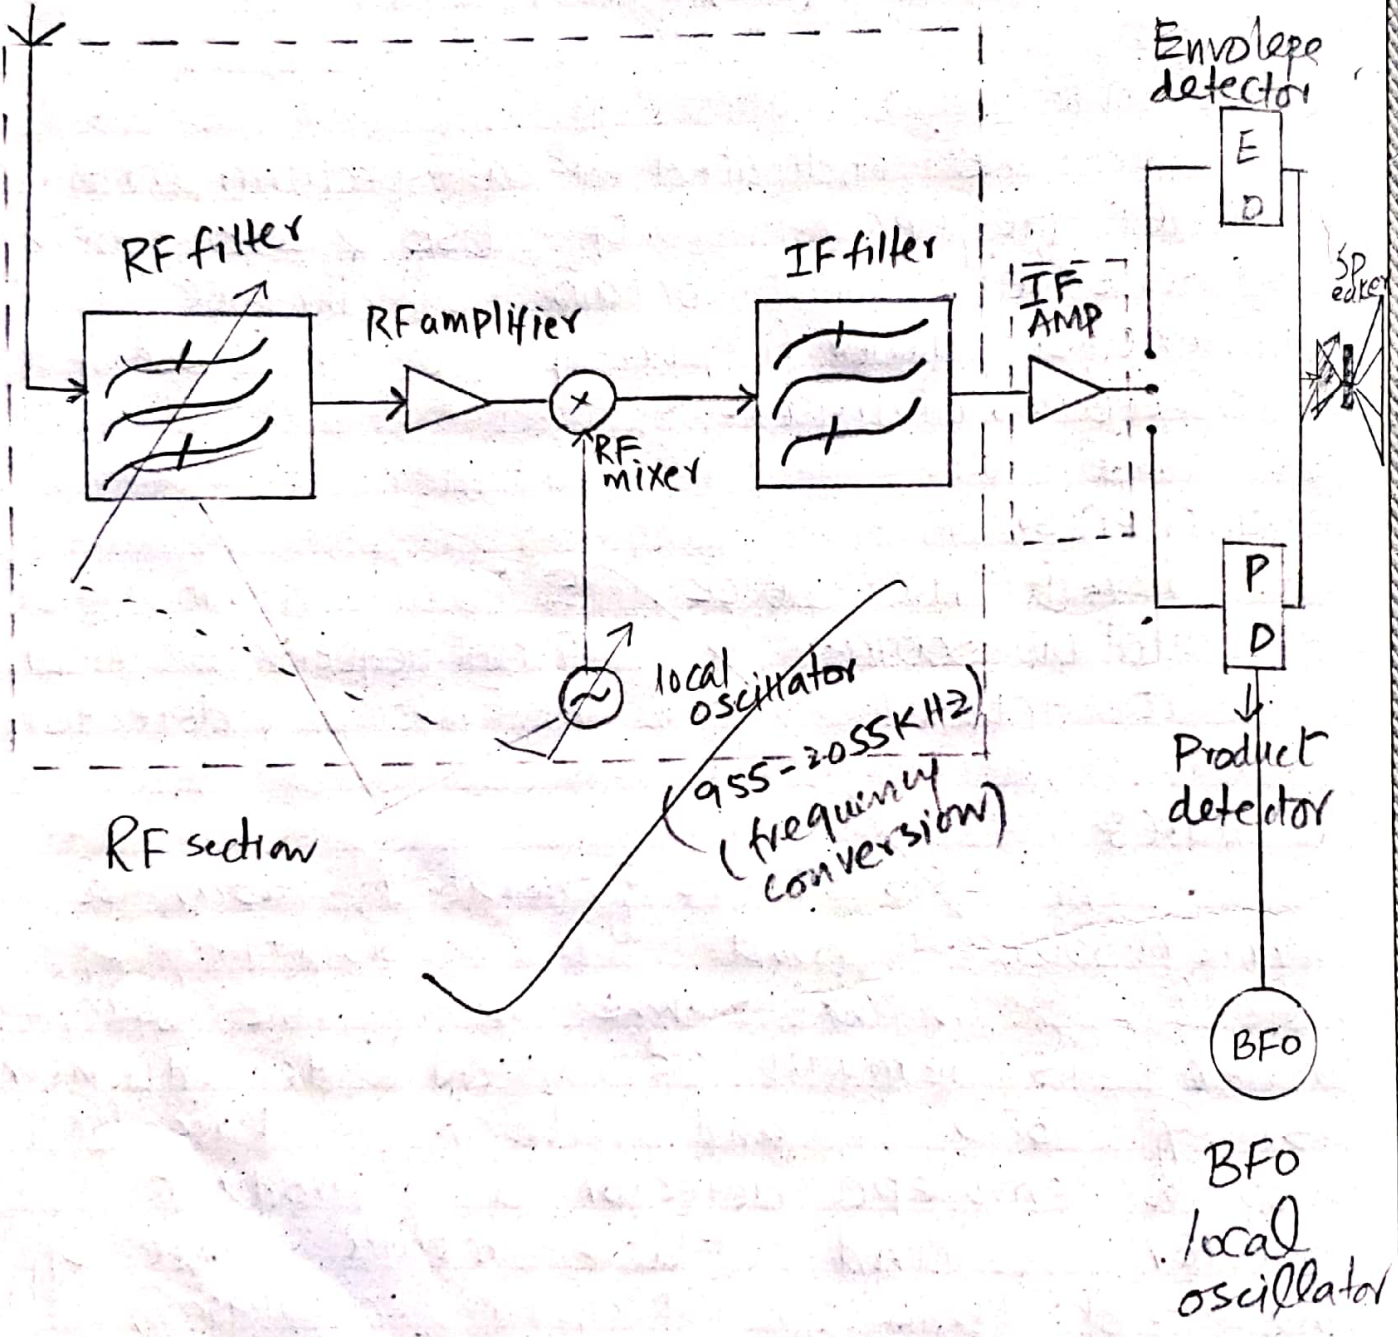 Envolepe
detector
E
D
RF filter
RF amplifier
IF filter
IF
AMP
Sp
eaker
×
RF
mixer
~
local
oscillator
(955-2055KHZ)
(frequency
conversion)
P
D
Product
detector
RF section
BFO
BFO
local
oscillator